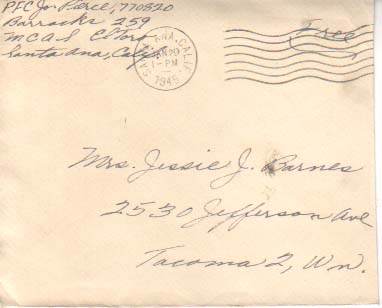 PFC Jo Pierce, 770820
Barracks 259
M C A S El Toro
Santa Ana, Calif
SANTA ANA, CALIF.
JAN 20
1-PM
1945
Free
Mrs. Jessie J. Barnes
2530 Jefferson Ave
Tacoma 2, Wn.